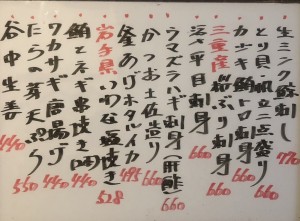 生ミンク鯨刺し 770
とり貝・帆立二点盛り
カジキ鮪トロ刺身 660
三重産 ぶり刺身 660
活〆平目刺身 660
ウマズラハギ刺身(肝酢) 660
かつお土佐造り 660
釜あげホタルイカ 495
岩手県いわな塩焼き 528
鮪とネギ串焼き 440
ワカサギ唐揚げ 440
たらの芽天ぷら 550
谷中生姜 440